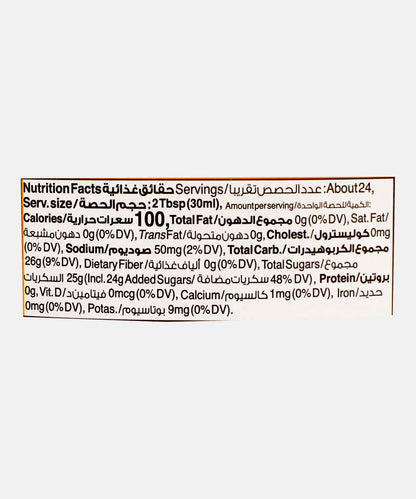 Nutrition Facts حقائق غذائية Servings/عدد الحصص تقريبا: About 24,
Serv. size/حجم الحصة: 2Tbsp (30ml), Amount per serving/الكمية للحصة الواحدة:
Calories/سعرات حرارية 100, Total Fat/مجموع الدهون 0g (0% DV), Sat. Fat/
دهون مشبعة 0g (0% DV), Trans Fat/دهون متحولة 0g, Cholest./كوليسترول 0mg
(0% DV), Sodium/صوديوم 50mg (2% DV), Total Carb./مجموع الكربوهيدرات
26g (9% DV), Dietary Fiber/ألياف غذائية 0g (0% DV), Total Sugars/مجموع
السكريات 25g (Incl. 24g Added Sugars/سكريات مضافة 48% DV), Protein/بروتين
0g, Vit. D/فيتامين د 0mcg (0% DV), Calcium/كالسيوم 1mg (0% DV), Iron/حديد
0mg (0% DV), Potas./بوتاسيوم 9mg (0% DV).